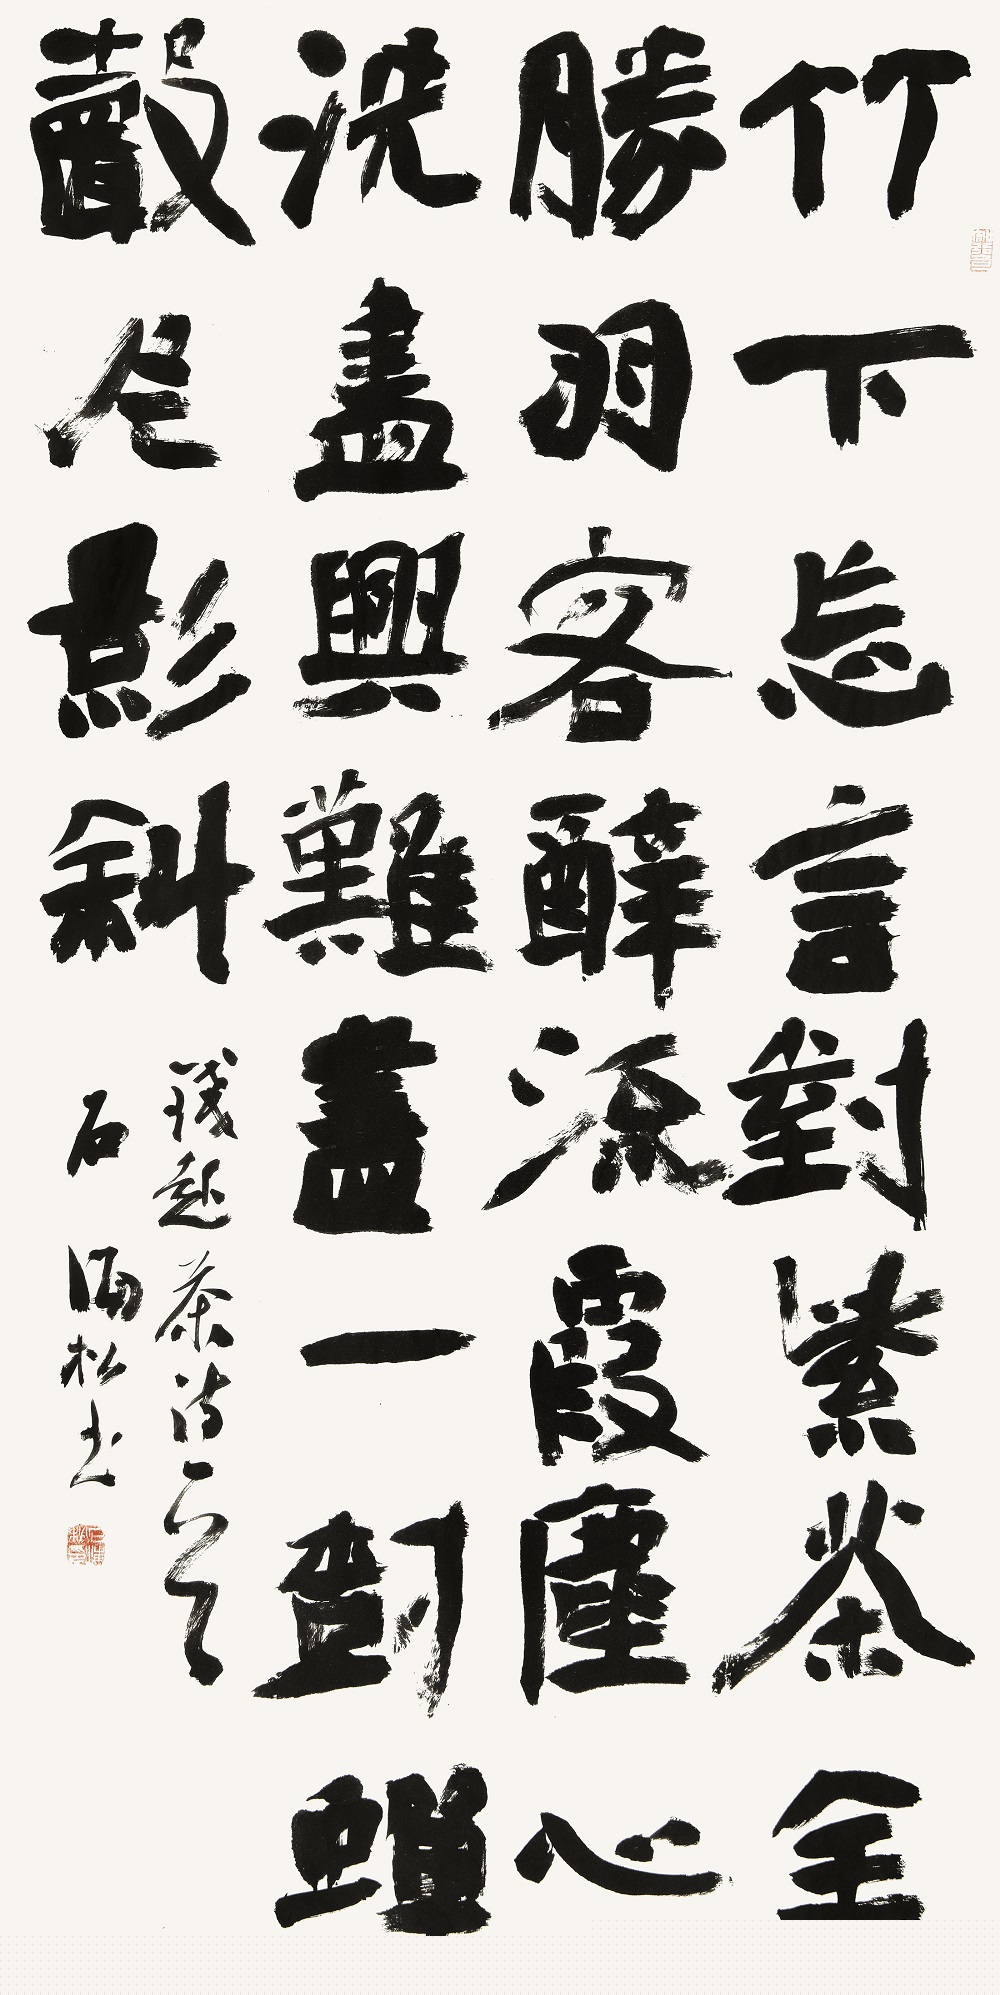 竹下忘言對紫茶全
勝羽客醉流霞塵心
洗盡興難盡一樹蟬
聲片影斜
錢起茶诗一首
石 松书